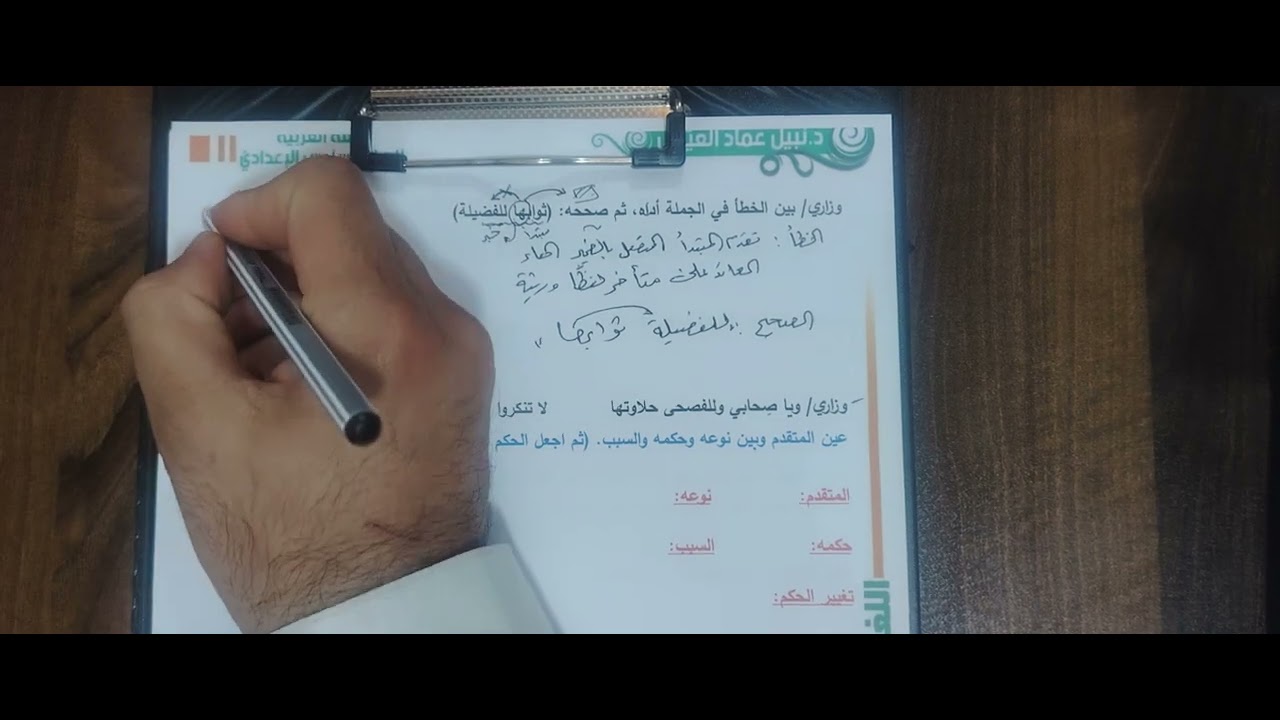 د. نبيل عماد
العربية
الإعدادي
وزاري/ بين الخطأ في الجملة أدناه، ثم صححه: (ثوابها للفضيلة)
مبتدأ خبر
الخطأ : تقدم المبتدأ المتصل بالضمير الهاء
العائد على متأخر لفظًا ورتبة
الصحيح : للفضيلة ثوابها
– وزاري/ ويا صِحابي وللفصحى حلاوتها لا تنكروا
عين المتقدم وبين نوعه وحكمه والسبب. (ثم اجعل الحكم
المتقدم: نوعه:
حكمه: السبب:
تغيير الحكم: